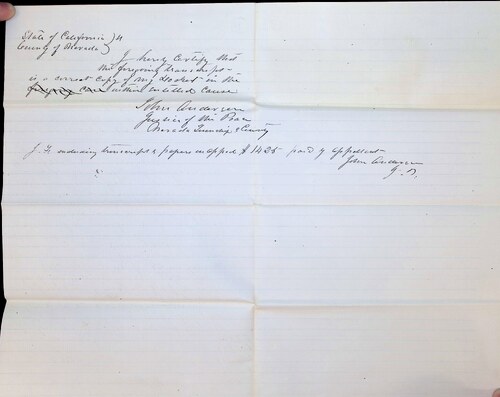 State of California } ss
County of Nevada }
I hereby Certify that
the foregoing transcript
is a correct Copy of my Docket in the
within entitled Cause
John Anderson
Justice of the Peace
Nevada Township & County
J. F. ordering transcript & papers on appeal $ 14.25 paid by appellant
John Anderson
J. P.